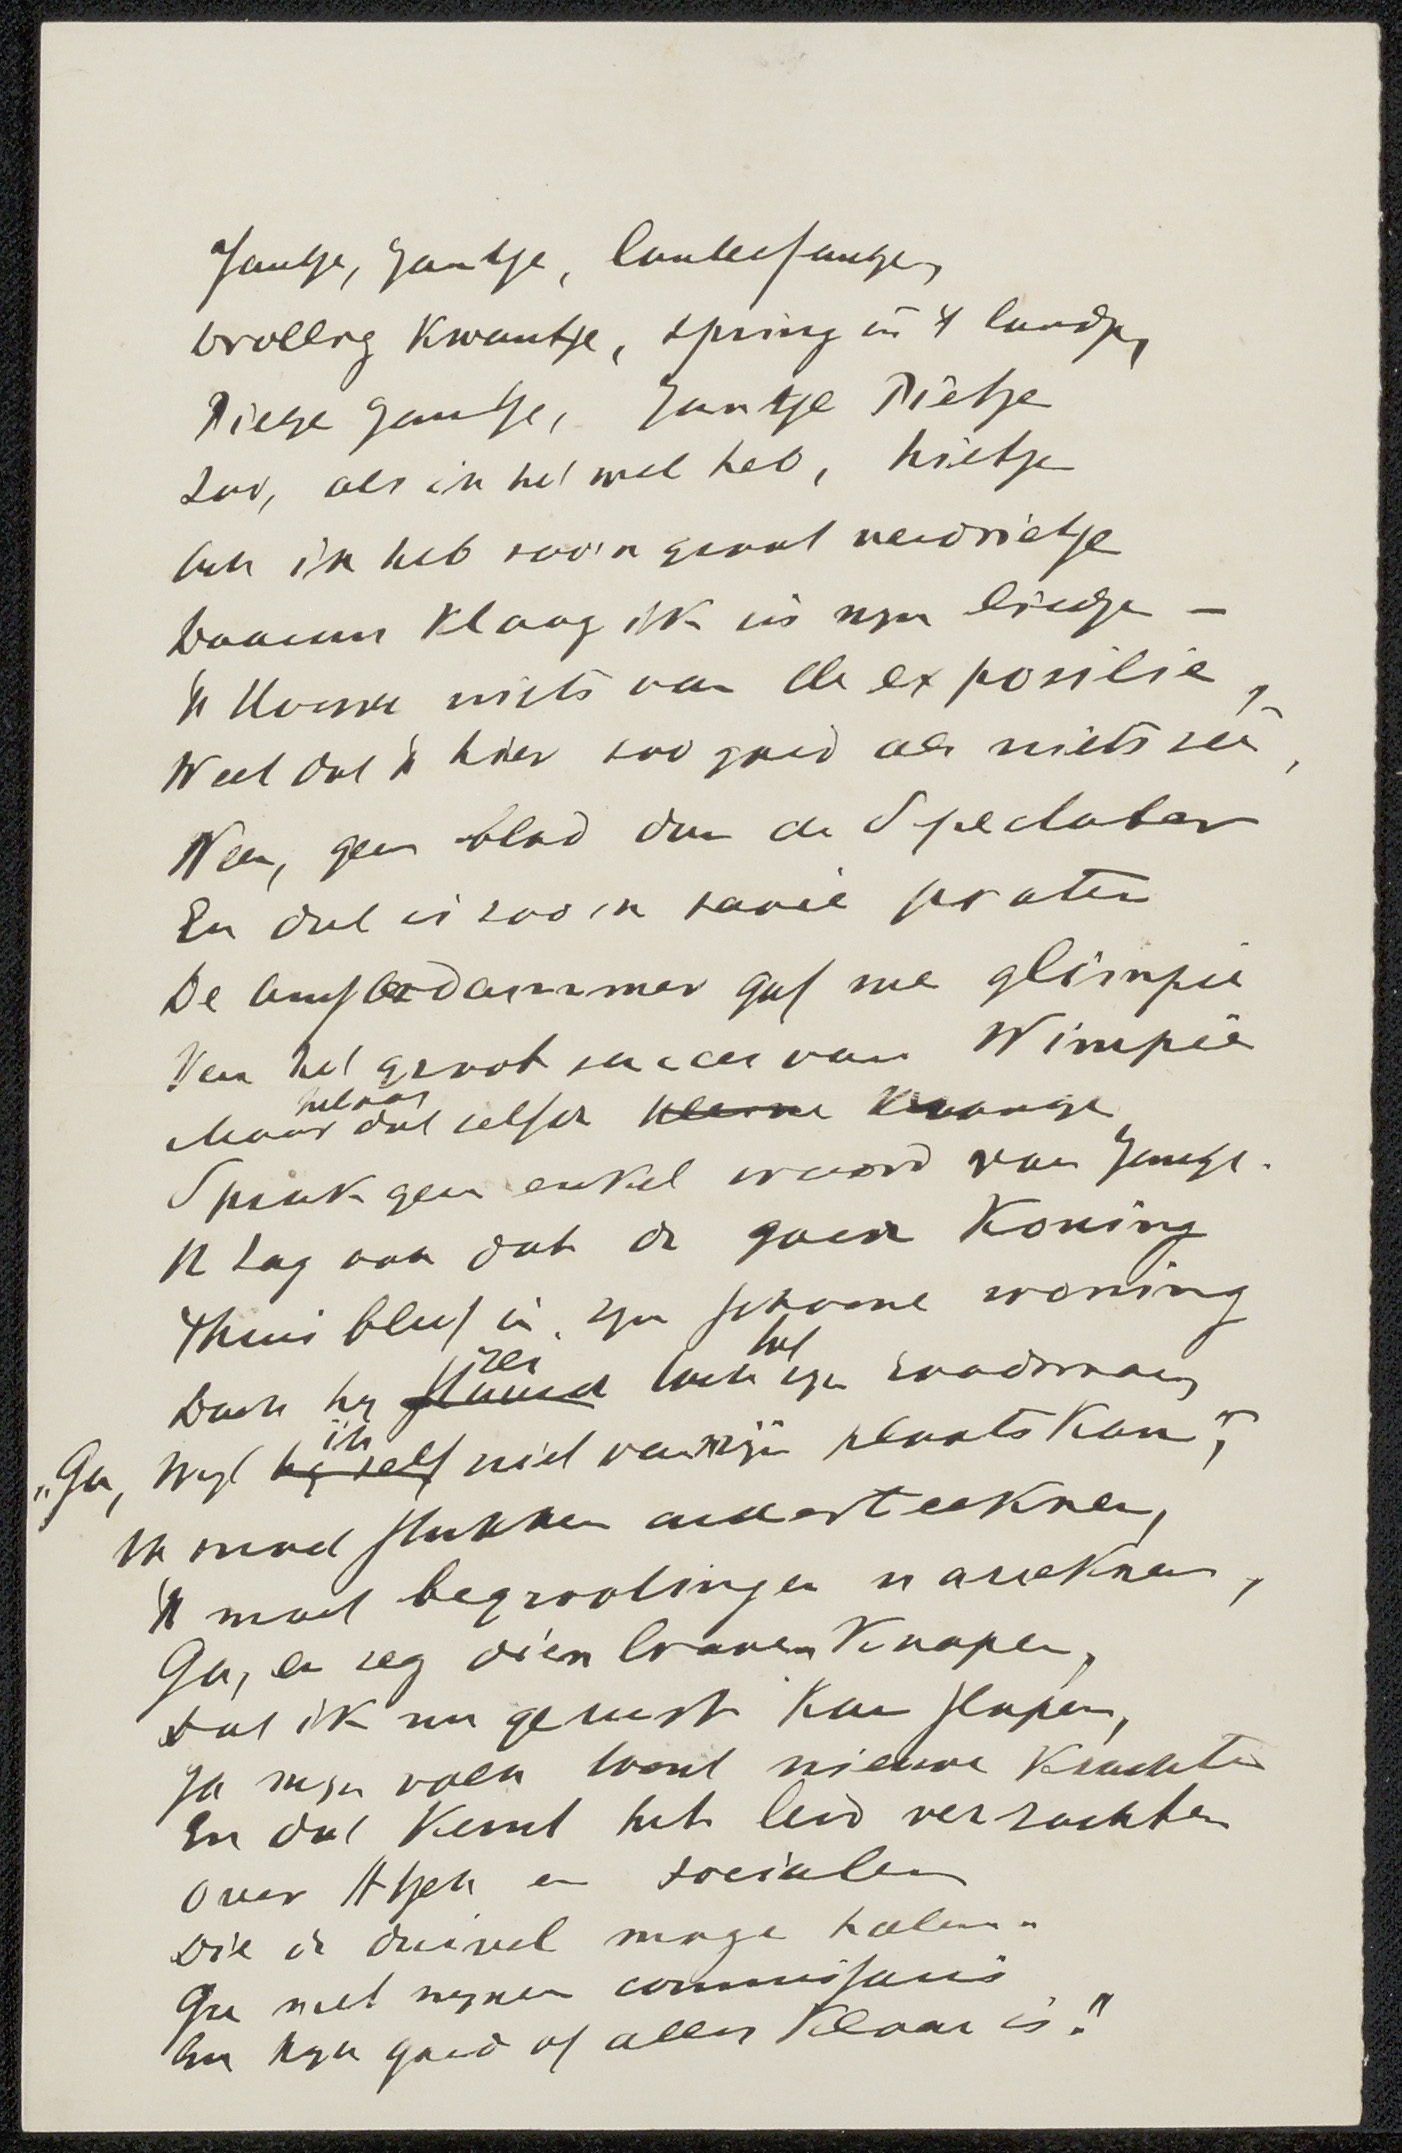 Jantje, Jantje, lanterfantje,
Drollig Kwantje, spring in 't landje,
Pietje Jantje, Jantje Pietje
Zoo, als ik het wel heb, hietje
Ach ik heb zoo'n groot verdrietje
Daarom klaag ik in mijn liedje –
'k Hoorde niets van de expositie,
Weet dat 'k hier zoo goed als niets zie,
Neen, geen blad dan de Spectator
En dat is zoo'n prater
De Amsterdammer gaf me glimpie
Van het groot succes van Wimpie
Maar helaas dat zelfde kleine Krantje
Sprak geen enkel woord van Jantje.
'k Zag ook dat de goede Koning
Thuis bleef in zijn schoone woning
Doch hij stuurde zei toch tot zijn raadsman,
"Ga, wijl hij zelf ik niet van mijn plaats kan",
'k moet stukken onderteeknen,
'k moet begrootingen nareknen,
Ga, en zeg dien braven Knapen,
Dat ik nu gerust kan slapen,
Ja mijn volk toont nieuwe krachten
En dat komt het leed verzachten
Over Atjeh en socialen
Die de duivel moge halen.
Ga met mijnen commissaris
En kijk goed of alles klaar is."